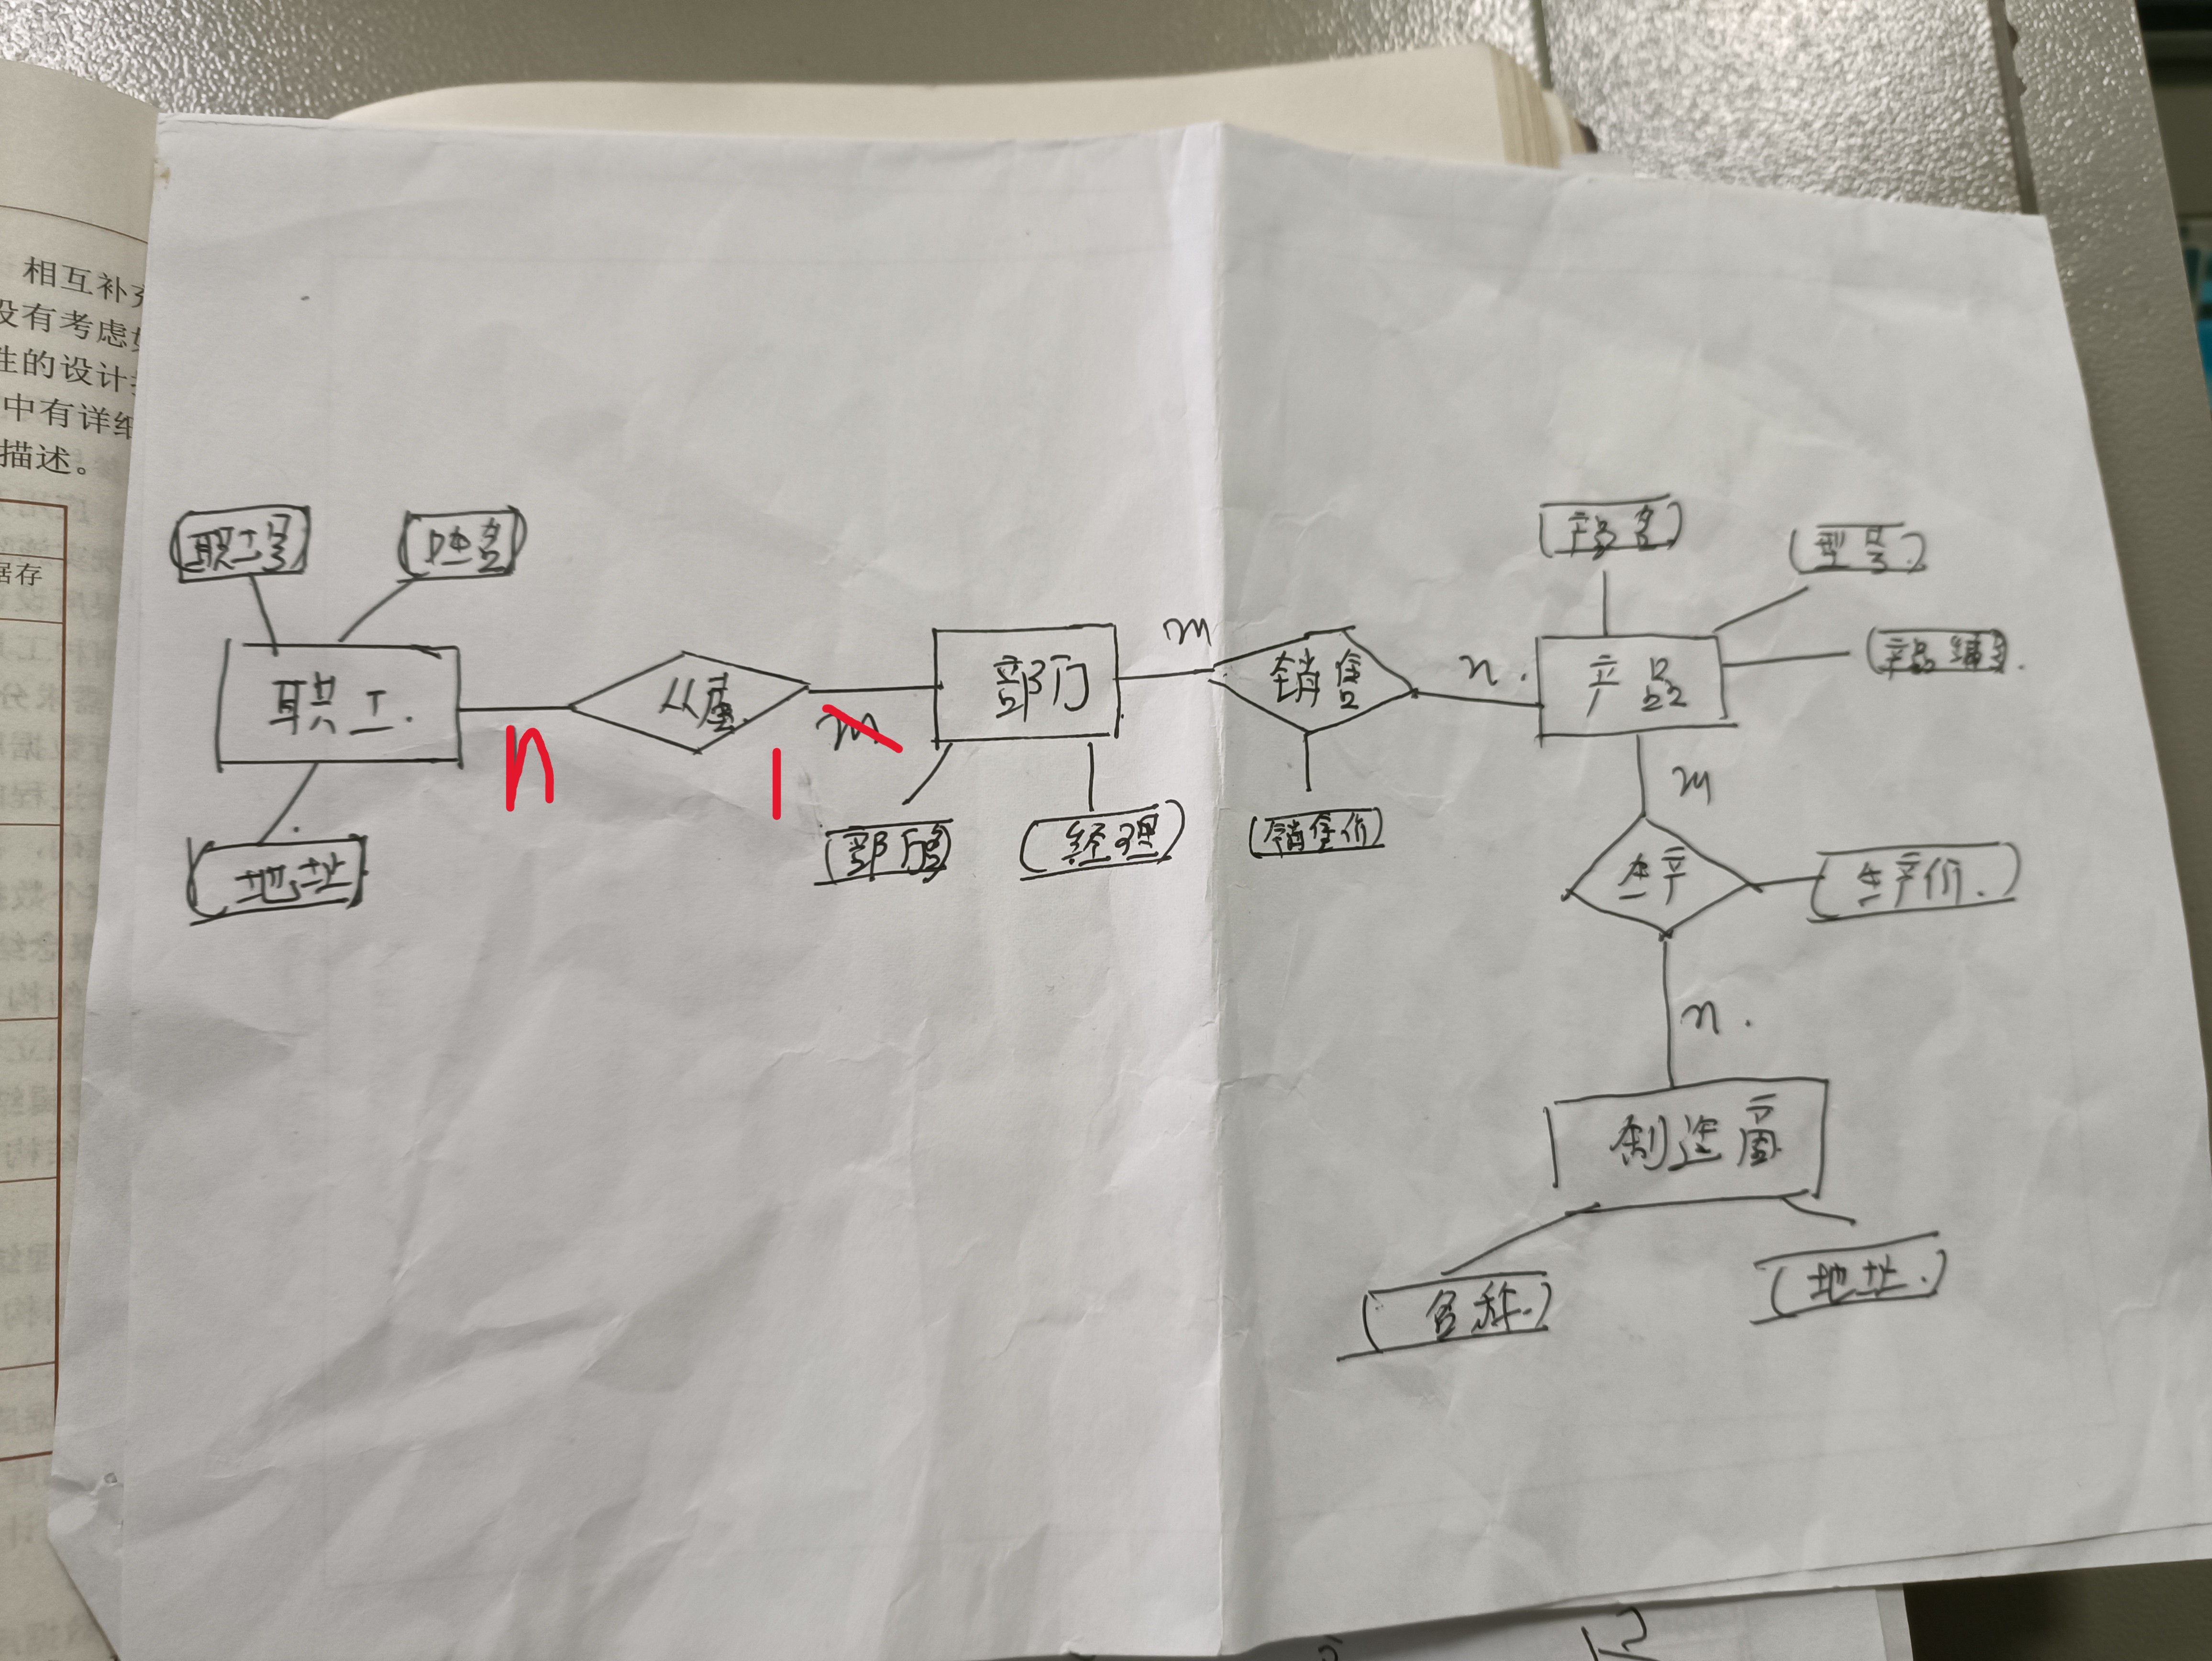 相互补充
没有考虑如
性的设计
中有详细
描述。
据存
职工号
姓名
职工
地址
n
从属
1
m
部门
部门名
经理
m
销售
n
销售价
产品名
型号
产品编号
产品
m
生产
生产价
n
制造商
名称
地址